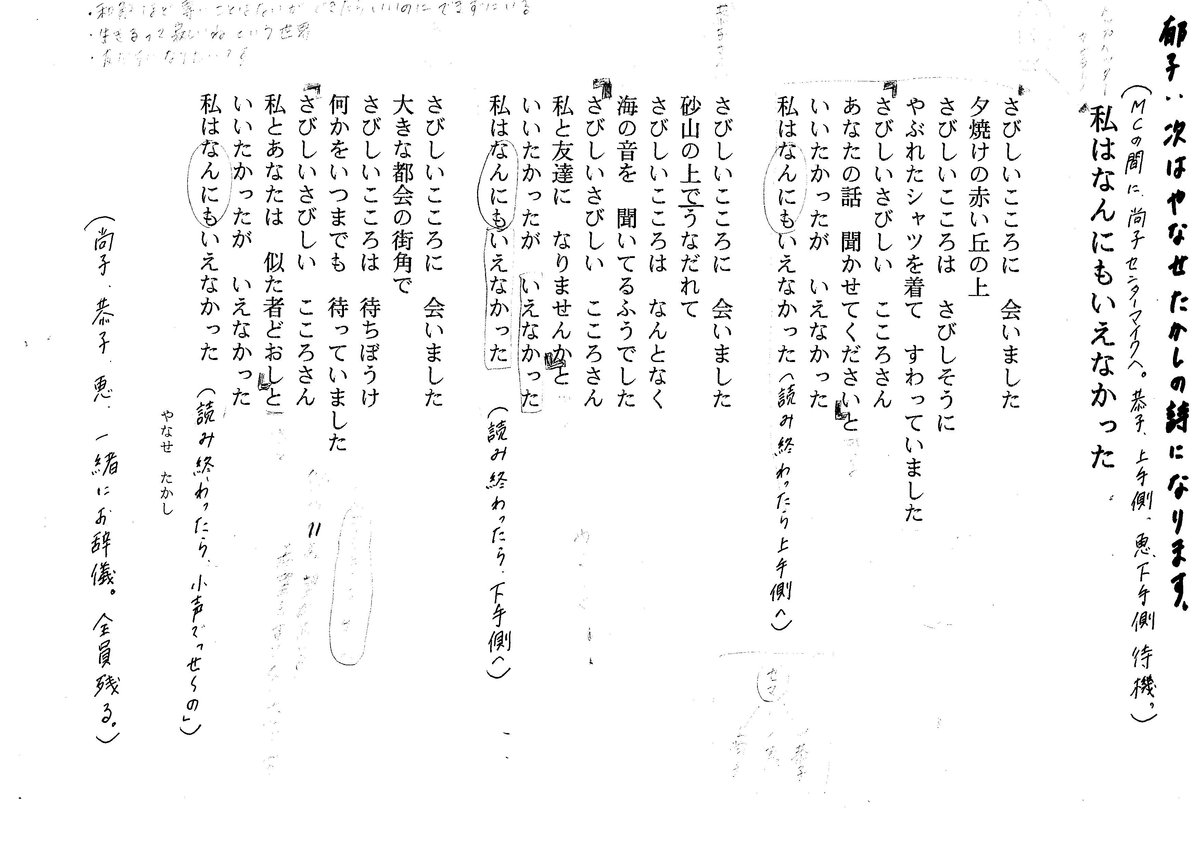 郁子:次はやなせたかしの詩になります。
(MCの間に、尚子センターマイクへ。恭子、上手側、恵、下手側待機。)
私はなんにもいえなかった
さびしいこころに　会いました
夕焼けの赤い丘の上
さびしいこころは　さびしそうに
やぶれたシャツを着て　すわっていました
さびしいさびしい　こころさん
あなたの話　聞かせてくださいと
いいたかったが　いえなかった
私はなんにもいえなかった(読み終わったら上手側へ)
さびしいこころに　会いました
砂山の上でうなだれて
さびしいこころは　なんとなく
海の音を　聞いてるふうでした
さびしいさびしい　こころさん
私と友達に　なりませんかと
いいたかったが　いえなかった
私はなんにもいえなかった　(読み終わったら、下手側へ)
さびしいこころに　会いました
大きな都会の街角で
さびしいこころは　待ちぼうけ
何かをいつまでも　待っていました
さびしいさびしい　こころさん
私とあなたは　似た者どおしと
いいたかったが　いえなかった
私はなんにもいえなかった　(読み終わったら、小声で「せーの」)
やなせ　たかし
(尚子、恭子、恵、一緒にお辞儀。全員残る。)
・生きるって寂しいねという世界